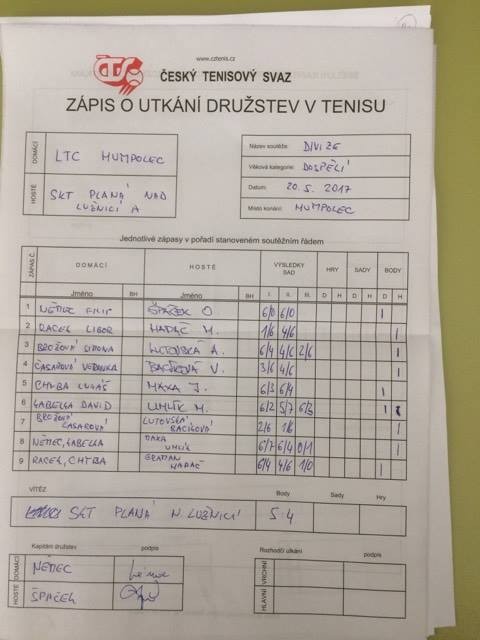 www.cztenis.cz
ČTS
ČESKÝ TENISOVÝ SVAZ
ZÁPIS O UTKÁNÍ DRUŽSTEV V TENISU
DOMÁCÍ LTC HUMPOLEC
HOSTÉ SKT PLANÁ NAD LUŽNICÍ A
Název soutěže: DIVIZE
Věková kategorie: DOSPĚLÍ
Datum: 20. 5. 2017
Místo konání: HUMPOLEC
Jednotlivé zápasy v pořadí stanoveném soutěžním řádem
ZÁPAS Č. DOMÁCÍ HOSTÉ VÝSLEDKY SAD HRY SADY BODY
Jméno BH Jméno BH I. II. III. D H D H D H
1 NĚMEC FILIP ŠPAČEK O 6/0 6/0 1
2 RACEK LIBOR MARAČ M. 1/6 4/6 1
3 BROŽOVÁ SIMONA LUTOVSKÁ A. 6/4 4/6 2/6 1
4 ČASAROVÁ VERONIKA BACÍKOVÁ V. 3/6 4/6 1
5 CHYBA LUKÁŠ MAXA J. 6/3 6/4 1
6 GABELLA DAVID UHLÍK M. 6/2 5/7 6/3 1
7 BROŽOVÁ CASAROVÁ LUTOVSKÁ BACÍKOVÁ 2/6 1/6 1
8 NĚMEC, GABELLA UHLÍK 6/7 6/4 0/1 1
9 RACEK, CHYBA MARAČ 6/4 4/6 1/0 1
VÍTĚZ Body Sady Hry
SKT PLANÁ N. LUŽNICÍ 5:4
Kapitáni družstev podpis Rozhodčí utkání podpis
DOMÁCÍ NĚMEC VRCHNÍ
HOSTÉ ŠPAČEK HLAVNÍ